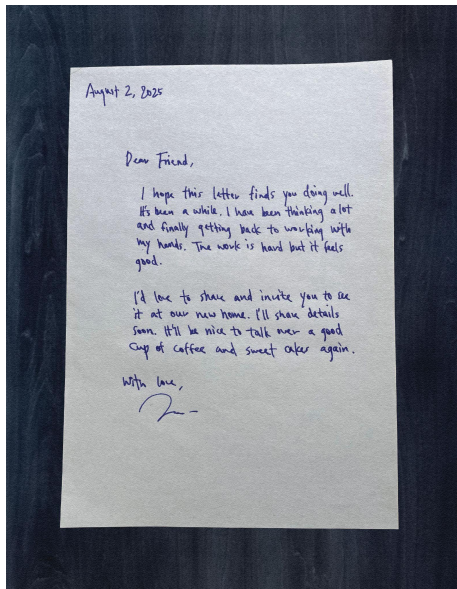 August 2, 2025
Dear Friend,
I hope this letter finds you doing well.
It's been a while. I have been thinking a lot
and finally getting back to working with
my hands. The work is hard but it feels
good.
I'd love to share and invite you to see
it at our new home. I'll share details
soon. It'll be nice to talk over a good
cup of coffee and sweet cakes again.
With love,